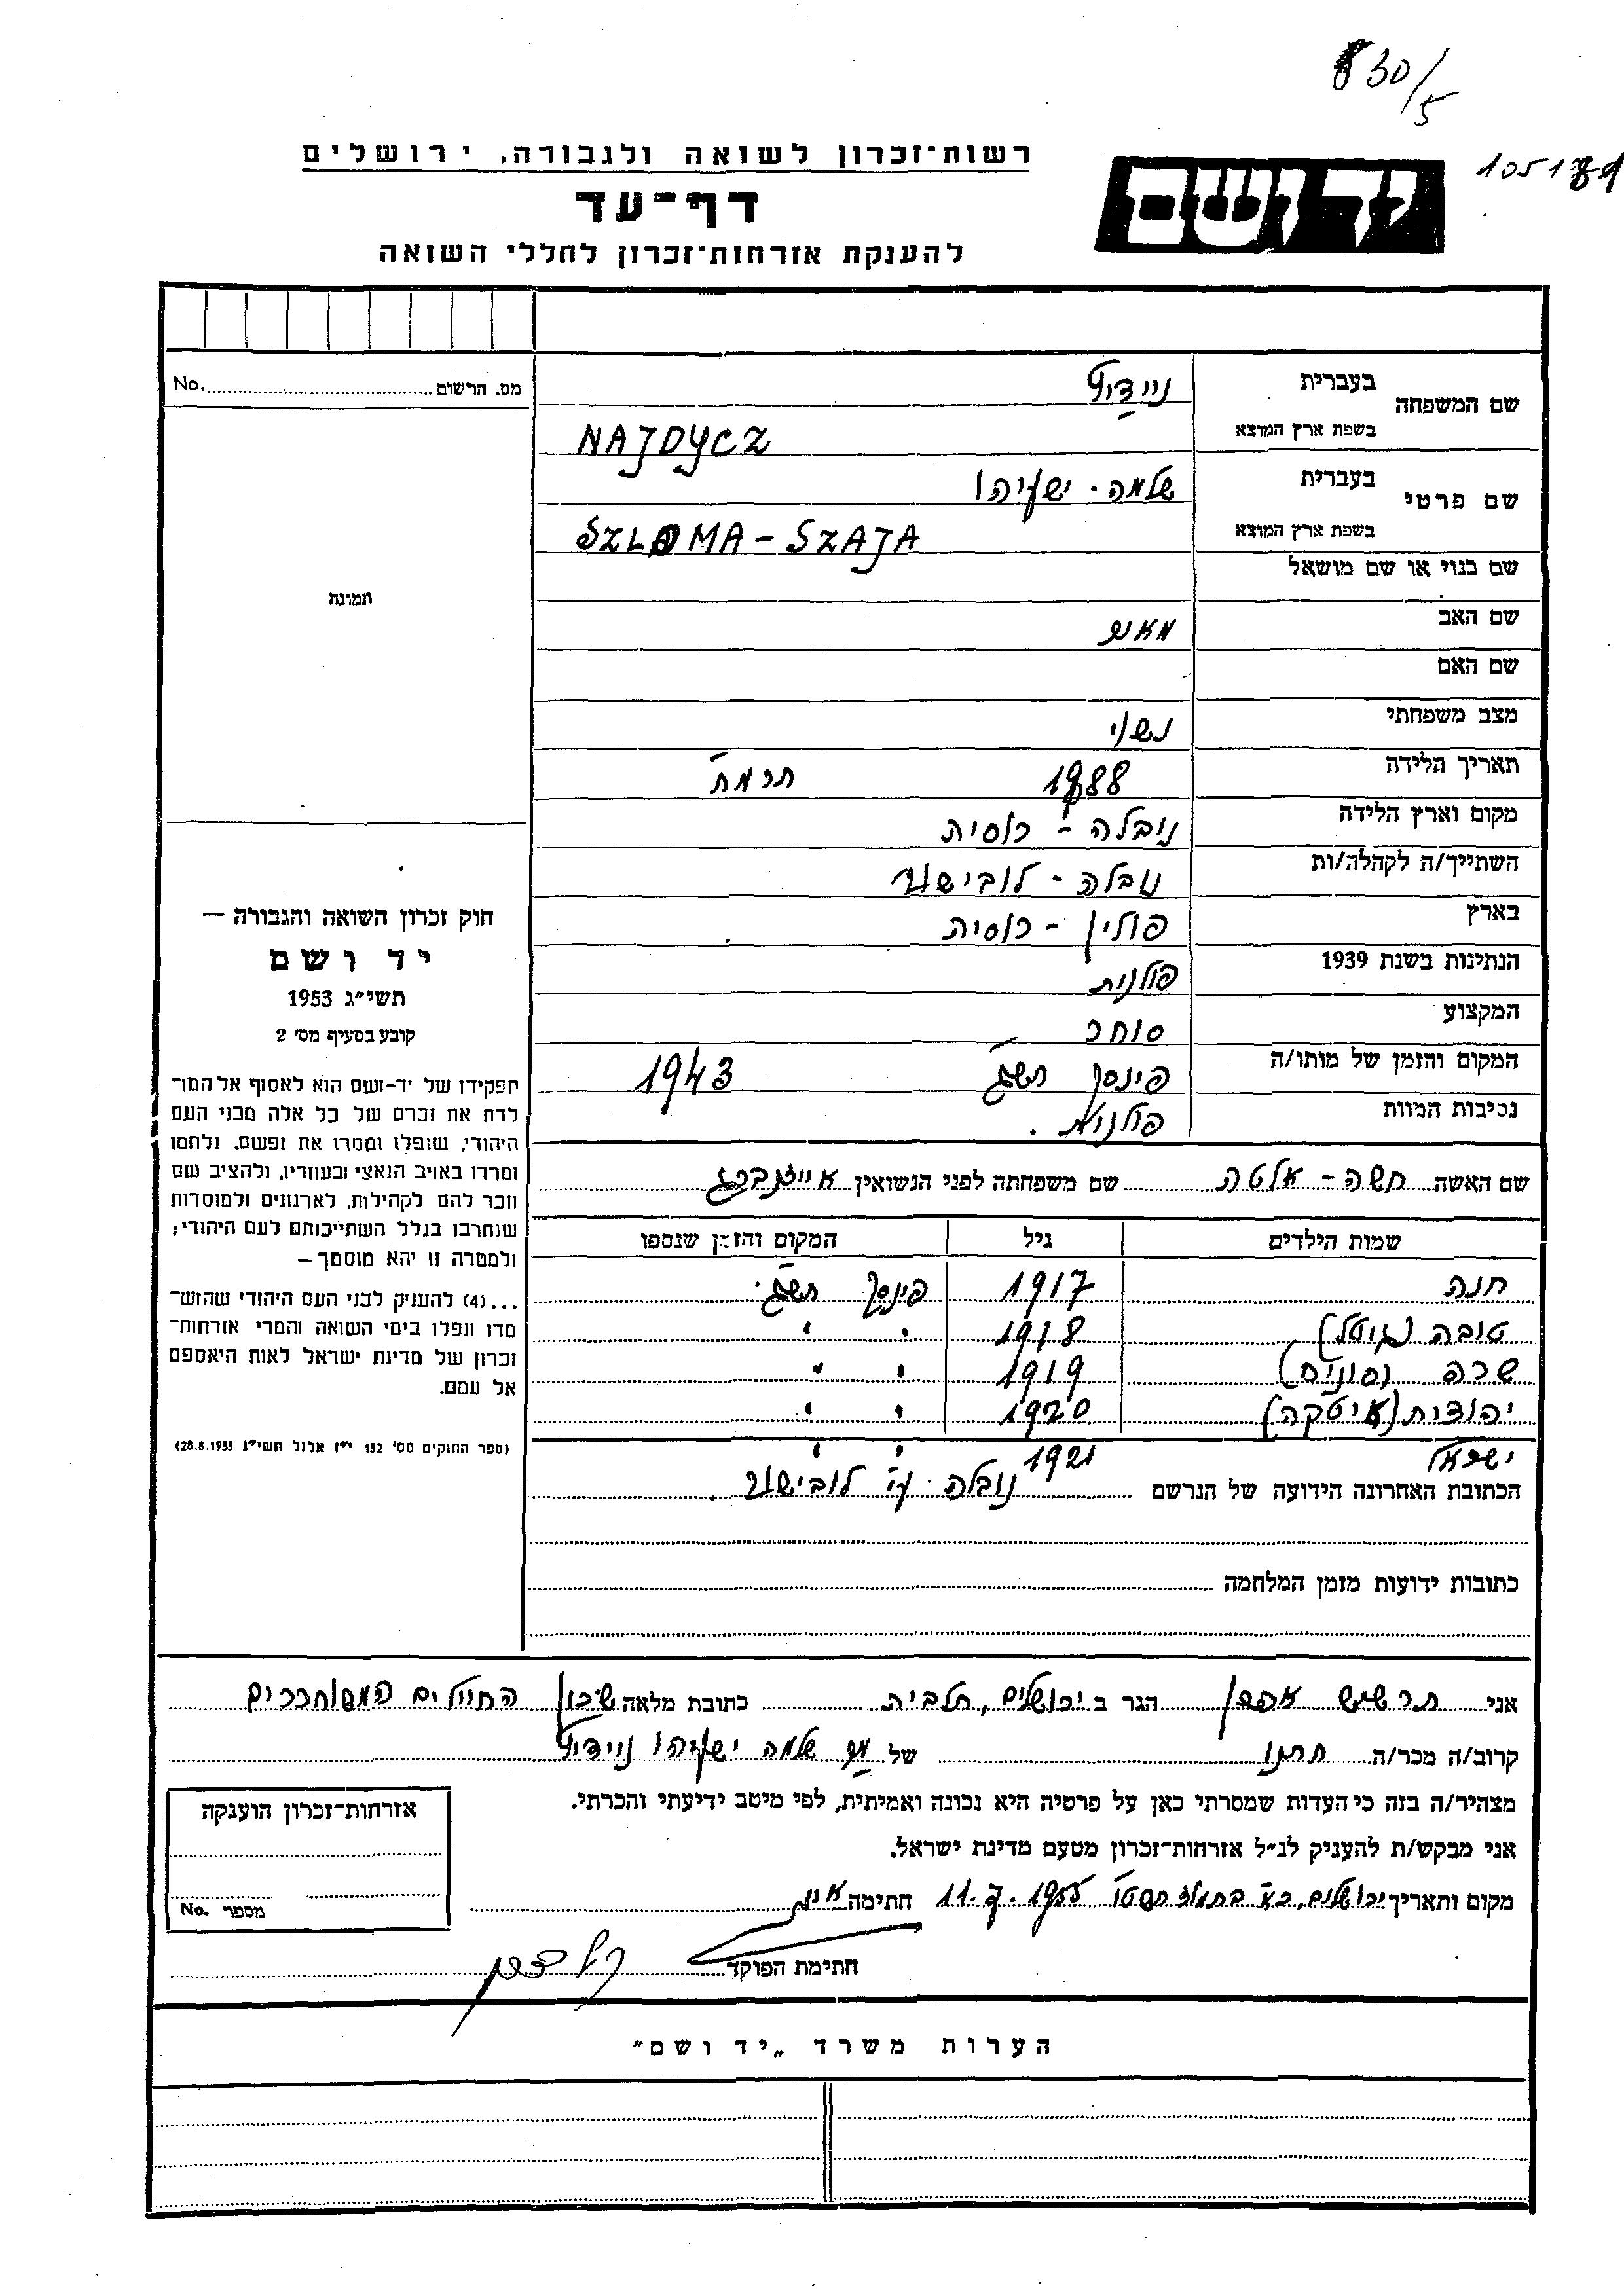 830/5
רשות־זכרון לשואה ולגבורה, ירושלים
יד ושם
דף־עד
להענקת אזרחות־זכרון לחללי השואה
מס. הרשום No.
תמונה
שם המשפחה
בעברית ניידיץ
בשפת ארץ המוצא NAJDYCZ
שם פרטי
בעברית שלמה - ישעיהו
בשפת ארץ המוצא SZLOMA - SZAJA
שם כנוי או שם מושאל
שם האב
שם האם
מצב משפחתי נשוי
תאריך הלידה 1888 תרמח
מקום וארץ הלידה נובלה - רוסית
השתייך/ה לקהלה/ות נובלה - לובישוב
בארץ פולין - רוסית
הנתינות בשנת 1939 פולנית
המקצוע סוחר
המקום והזמן של מותו/ה פינסק תשג 1943
נסיבות המוות
שם האשה חשה - אלטה שם משפחתה לפני הנשואין אייזנברג
שמות הילדים גיל המקום והזמן שנספו
חנה 1917 פינסק תשג
טובה (גיטל) 1918 " "
שרה 1919 " "
יהודית (איטקה) 1920 " "
ישראל 1921 " "
הכתובת האחרונה הידועה של הנרשם נובלה. ע"י לובישוב.
כתובות ידועות מזמן המלחמה
חוק זכרון השואה והגבורה —
יד ושם
תשי״ג 1953
קובע בסעיף מס׳ 2
תפקידן של יד-ושם הוא לאסוף אל המו־
לדת את זכרם של כל אלה מבני העם
היהודי, שנפלו ומסרו את נפשם, נלחמו
ומרדו באויב הנאצי ובעוזריו, ולהציב שם
וזכר להם לקהילות, לארגונים ולמוסדות
שנחרבו בגלל השתייכותם לעם היהודי;
ולמטרה זו יהא מוסמך —
...(4) להעניק לבני העם היהודי שהוש־
מדו ונפלו בימי השואה והמרי אזרחות־
זכרון של מדינת ישראל לאות היאספם
אל עמם.
(ספר החוקים מס׳ 132 י״ז אלול תשי״ג 28.8.1953)
אני תרשיש הגר ב ירושלים, תלבית כתובת מלאה שיכון החיילים המשוחררים
קרוב/ה מכר/ה חתנו של מר שלמה ישעיהו ניידיץ
מצהיר/ה בזה כי העדות שמסרתי כאן על פרטיה היא נכונה ואמיתית, לפי מיטב ידיעתי והכרתי.
אני מבקש/ת להעניק לנ״ל אזרחות־זכרון מטעם מדינת ישראל.
מקום ותאריך ירושלים, כא בתמוז תשטו 11.7.1955 חתימה
חתימת הפוקד
אזרחות־זכרון הוענקה
מספר No.
הערות משרד „יד ושם״